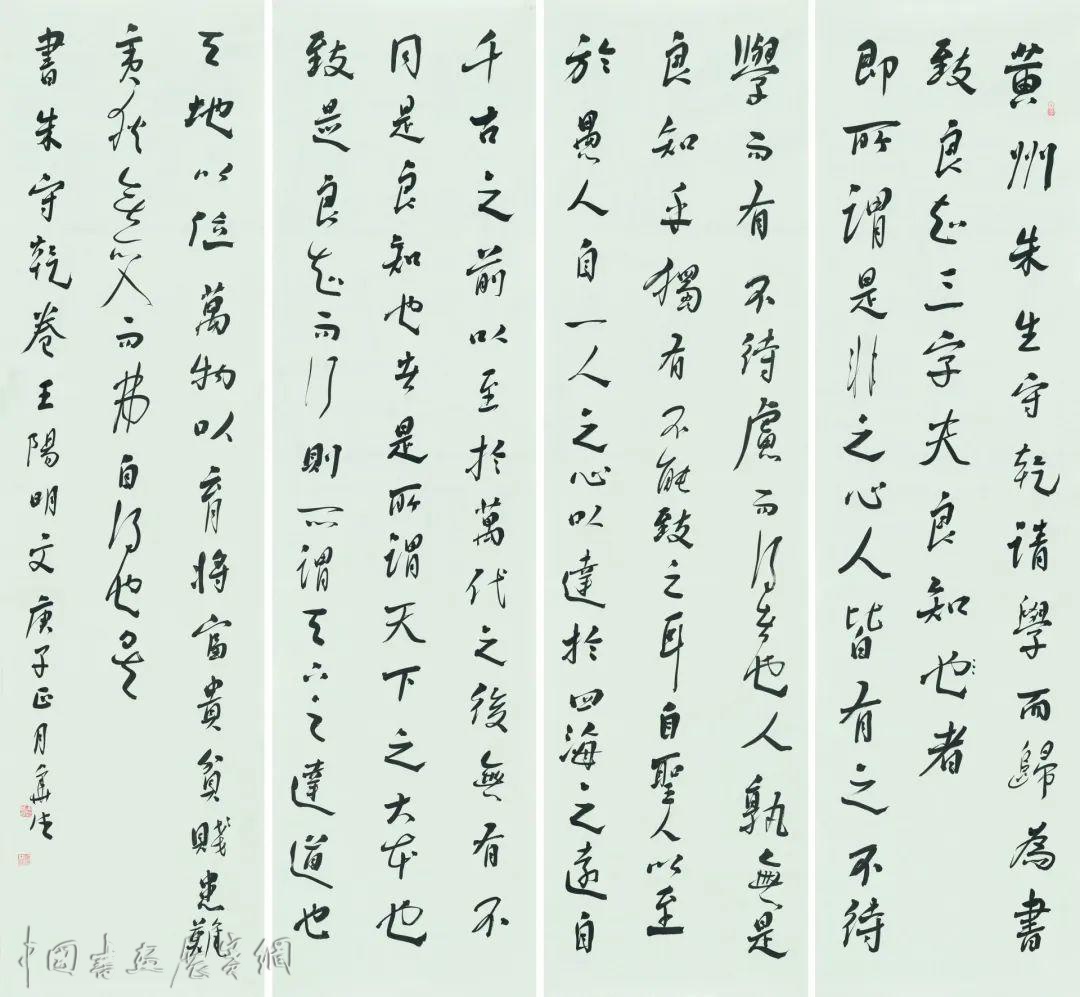 黃州朱生守乾請學而歸為書
致良知三字夫良知也者
即所謂是非之心人皆有之不待
學而有不待慮而得者也人孰無是
良知乎獨有不能致之耳自聖人以至
於愚人自一人之心以達於四海之遠自
千古之前以至於萬代之後無有不
同是良知也者是所謂天下之大本也
致是良知而行則所謂天下之達道也
天地以位萬物以育將富貴貧賤患難
夷狄無所入而弗自得也矣
書朱守乾卷王陽明文庚子正月
中國書畫展賽網